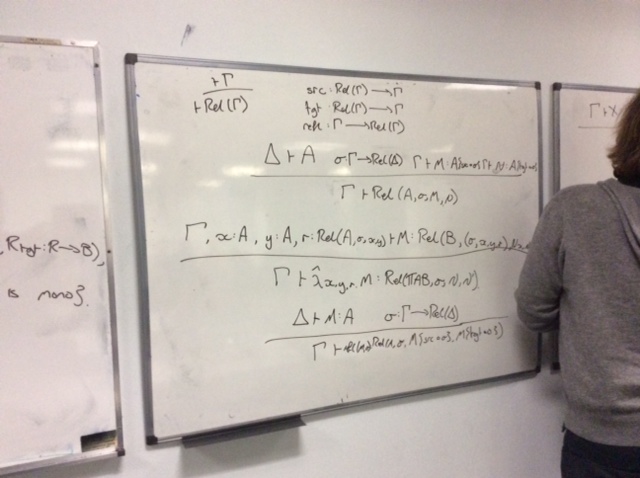 , Rtgt : R → B),
is mono}.
⊢ Γ
⊢ Rel(Γ)
src : Rel(Γ) → Γ
tgt : Rel(Γ) → Γ
refl : Γ → Rel(Γ)
Δ ⊢ A σ: Γ → Rel(Δ) Γ ⊢ M : A{src∘σ} Γ ⊢ N : A{tgt∘σ}
Γ ⊢ Rel(A, σ, M, N)
Γ, x:A, y:A, r: Rel(A, σ, x, y) ⊢ M : Rel(B, (σ, x, y, r),
Γ ⊢ λ̂ x,y,r. M : Rel(ΠAB, σ, N, N')
Δ ⊢ M : A σ: Γ → Rel(Δ)
Γ ⊢ Rel(A, σ, M{src∘σ}, M{tgt∘σ})
Γ ⊢ X